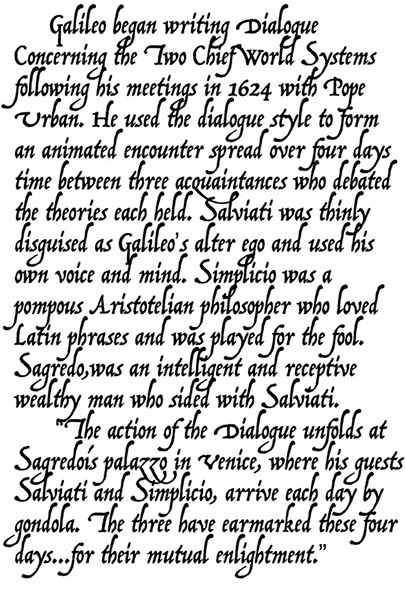 Galileo began writing Dialogue
Concerning the Two Chief World Systems
following his meetings in 1624 with Pope
Urban. He used the dialogue style to form
an animated encounter spread over four days
time between three acquaintances who debated
the theories each held. Salviati was thinly
disguised as Galileo's alter ego and used his
own voice and mind. Simplicio was a
pompous Aristotelian philosopher who loved
Latin phrases and was played for the fool.
Sagredo,was an intelligent and receptive
wealthy man who sided with Salviati.
"The action of the Dialogue unfolds at
Sagredoís palazzo in Venice, where his guests
Salviati and Simplicio, arrive each day by
gondola. The three have earmarked these four
days...for their mutual enlightment."